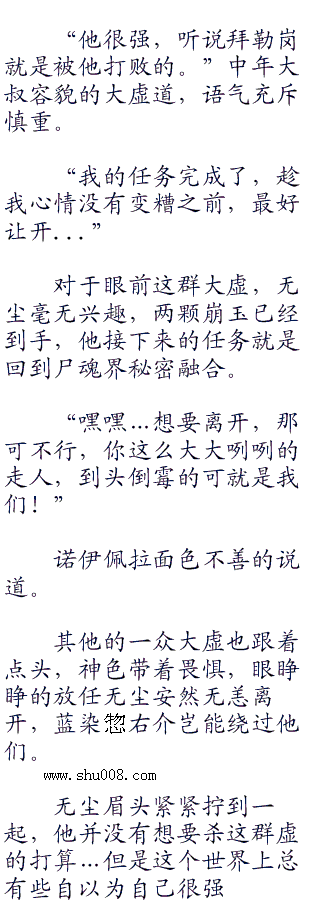 “他很强，听说拜勒岗
就是被他打败的。”中年大
叔容貌的大虚道，语气充斥
慎重。
“我的任务完成了，趁
我心情没有变糟之前，最好
让开...”
对于眼前这群大虚，无
尘毫无兴趣，两颗崩玉已经
到手，他接下来的任务就是
回到尸魂界秘密融合。
“嘿嘿…想要离开，那
可不行，你这么大大咧咧的
走人，到头倒霉的可就是我
们！”
诺伊佩拉面色不善的说
道。
其他的一众大虚也跟着
点头，神色带着畏惧，眼睁
睁的放任无尘安然无恙离
开，蓝染惣右介岂能绕过他
们。
www.shu008.com
无尘眉头紧紧拧到一
起，他并没有想要杀这群虚
的打算…但是这个世界上总
有些自以为自己很强